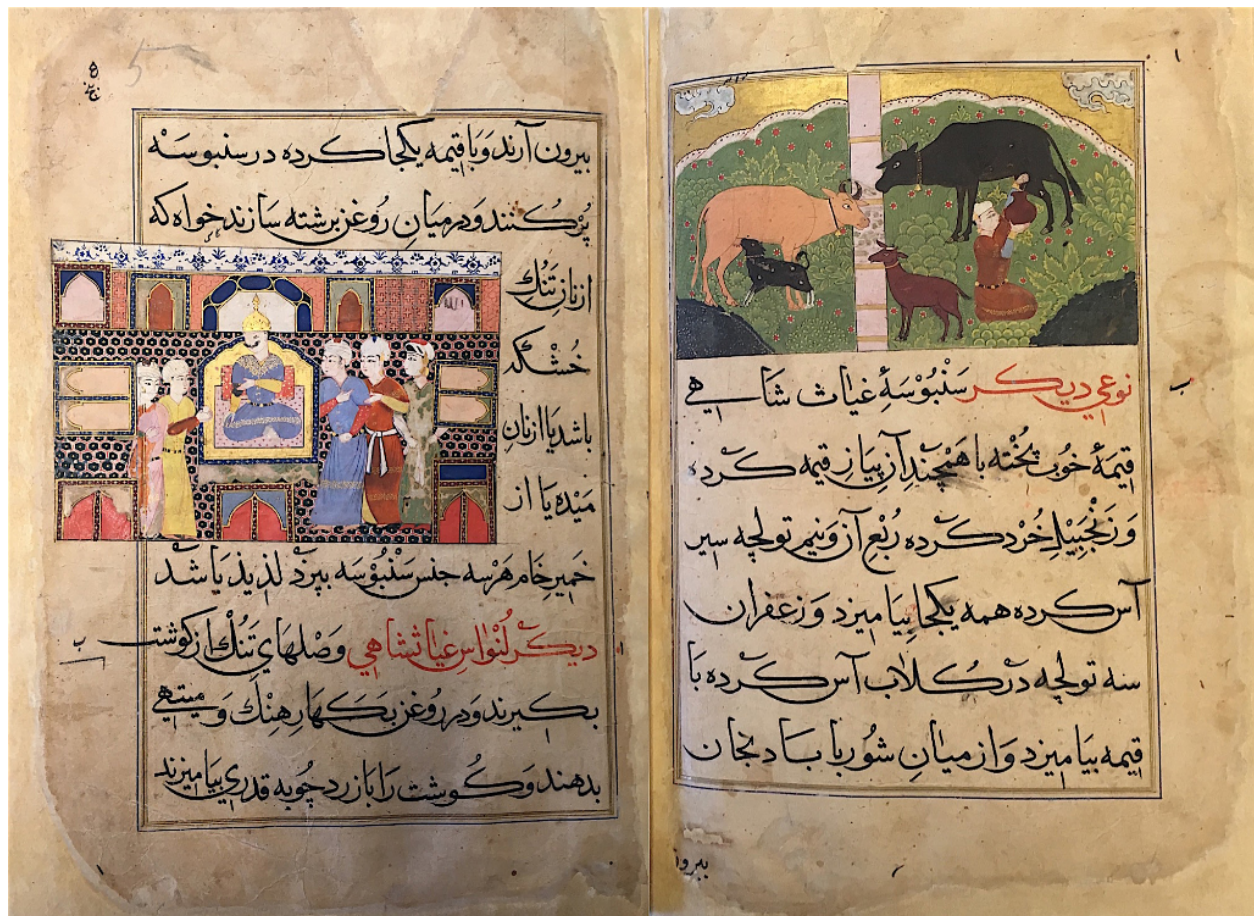 نوعي ديكر سَنْبُوْسَهٔ غياث شاهي
قيمهٔ خوب پخته با همچندِ آن پيازِ قيمه كرده
وَزنْجَبِيْلِ خُرد كرده رُبْعِ آن ونيم تولچه سير
آس كرده همه يكجا بياميزد وَزعفران
سه تولچه درگلاب آس كرده با
قيمه بياميزد وَازميانِ شوربا بادنجان
بيرو
بيرون آرند وَباقيمه يكجا كرده در سنبوسه
پُركُنند وَدرميانِ رُوغن برشته سازند خواه كه
ازنانِ تَنُك
خُشْكه
باشد يا ازنانِ
مَيْده يا از
خميرِ خام هرسه جنس سَنْبُوْسه بپزد لذيذ باشد
ديكر لُنْواسِ غياثشاهي وَصْلهايِ تَنُك ازكوشت
بكيرند وَدررُوغنِ بَكهارِ هِنْك وَميتهي
بدهند وَكُوشت رَا بازردچوبه قدري بياميزند